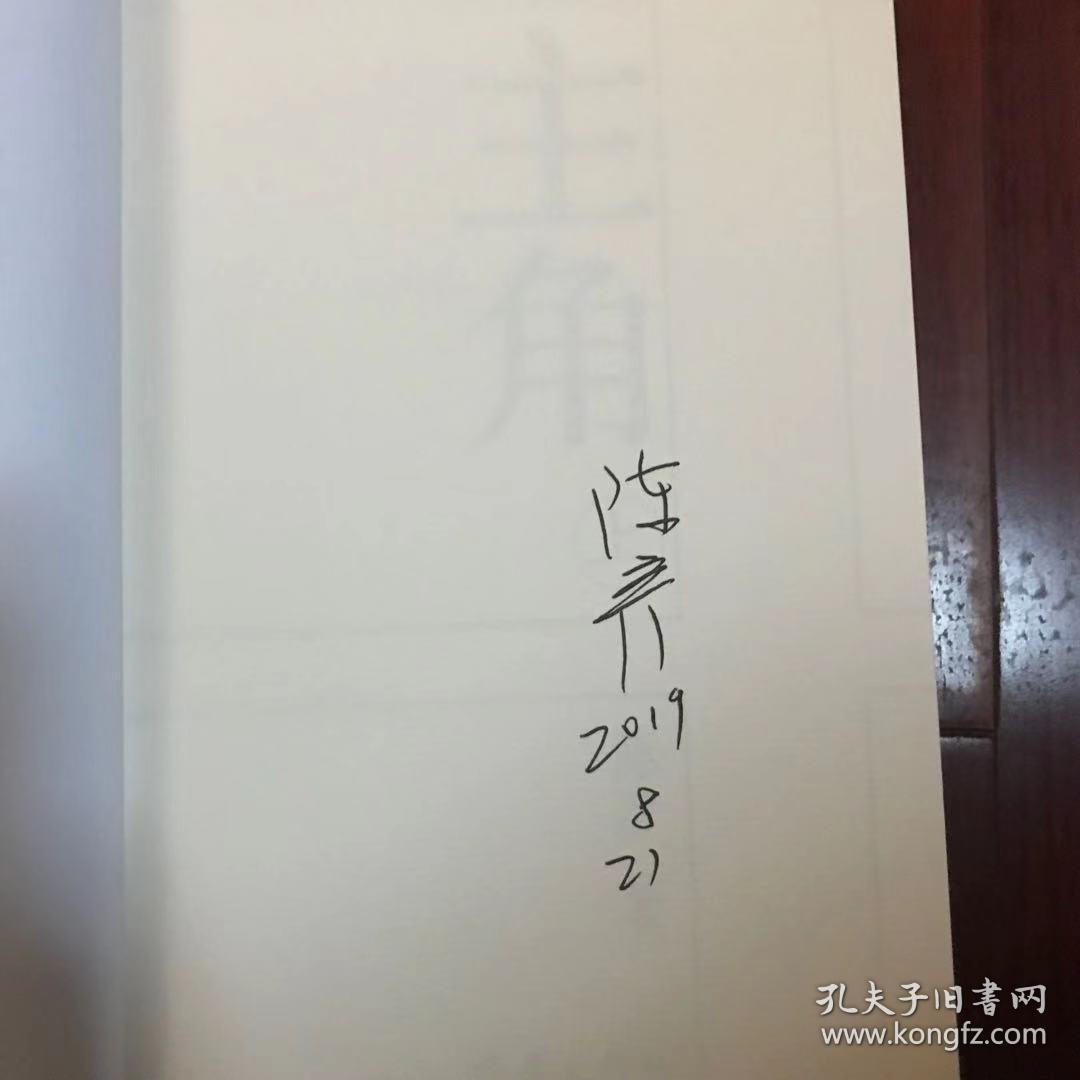 主角
陈彦
2019
8
21
孔夫子旧書网
www.kongfz.com